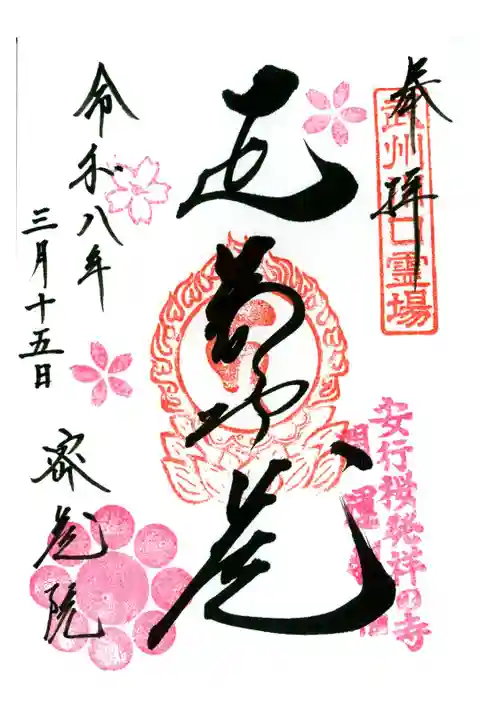 奉拝
武州川口霊場
安行桜発祥の寺
延命地蔵
令和八年
三月十五日
密蔵院